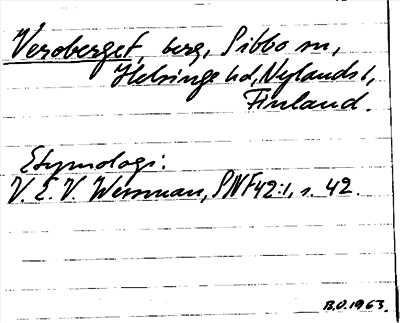 Veroberget, berg, Sibbo sn,
Helsinge hd, Nylands l,
Finland.
Etymologi:
V. E. V. Wessman, SNF 42:1, s. 42.
B.O. 1963.